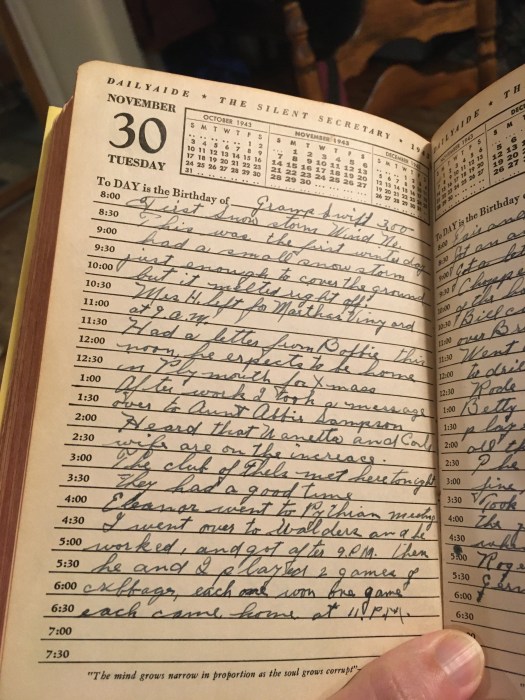 DAILYAIDE * THE SILENT SECRETARY * 19
NOVEMBER
30
TUESDAY
OCTOBER 1943
S M T W T F S
1 2
3 4 5 6 7 8 9
10 11 12 13 14 15 16
17 18 19 20 21 22 23
24 25 26 27 28 29 30
31
NOVEMBER 1943
S M T W T F S
1 2 3 4 5 6
7 8 9 10 11 12 13
14 15 16 17 18 19 20
21 22 23 24 25 26 27
28 29 30
To DAY is the Birthday of Gramp Swift 300
8:00 First Snow storm Wind Ne
8:30 This was the first winter day
9:00 had a small snow storm
9:30 just enough to cover the ground
10:00 but it melted right off.
10:30 Mrs H left fo Marthas Vinyard
11:00 at 9 A.M.
11:30 Had a letter from Bobbie this
12:00 noon, he expects to be home
12:30 in Plymouth for Xmass
1:00 After work I took a message
1:30 over to Aunt Abbie Sampson
2:00 Heard that Nanette and Carls
2:30 wife are on the increase.
3:00 The club of Thels met here tonight
3:30 they had a good time
4:00 Eleanor went to Pythian meeting
4:30 I went over to Walders and he
5:00 worked, and got after 9 P.M. then
5:30 he and I played 2 games of
6:00 cribbage, each one won one game
6:30 each came home at 11. P.M.
7:00
7:30
"The mind grows narrow in proportion as the soul grows corrupt"
DAILYAIDE * TH
To DAY is the Birthday
Bill c
over B
Went
to dril
Rode
Betty
play
fine
Took
the
Roge